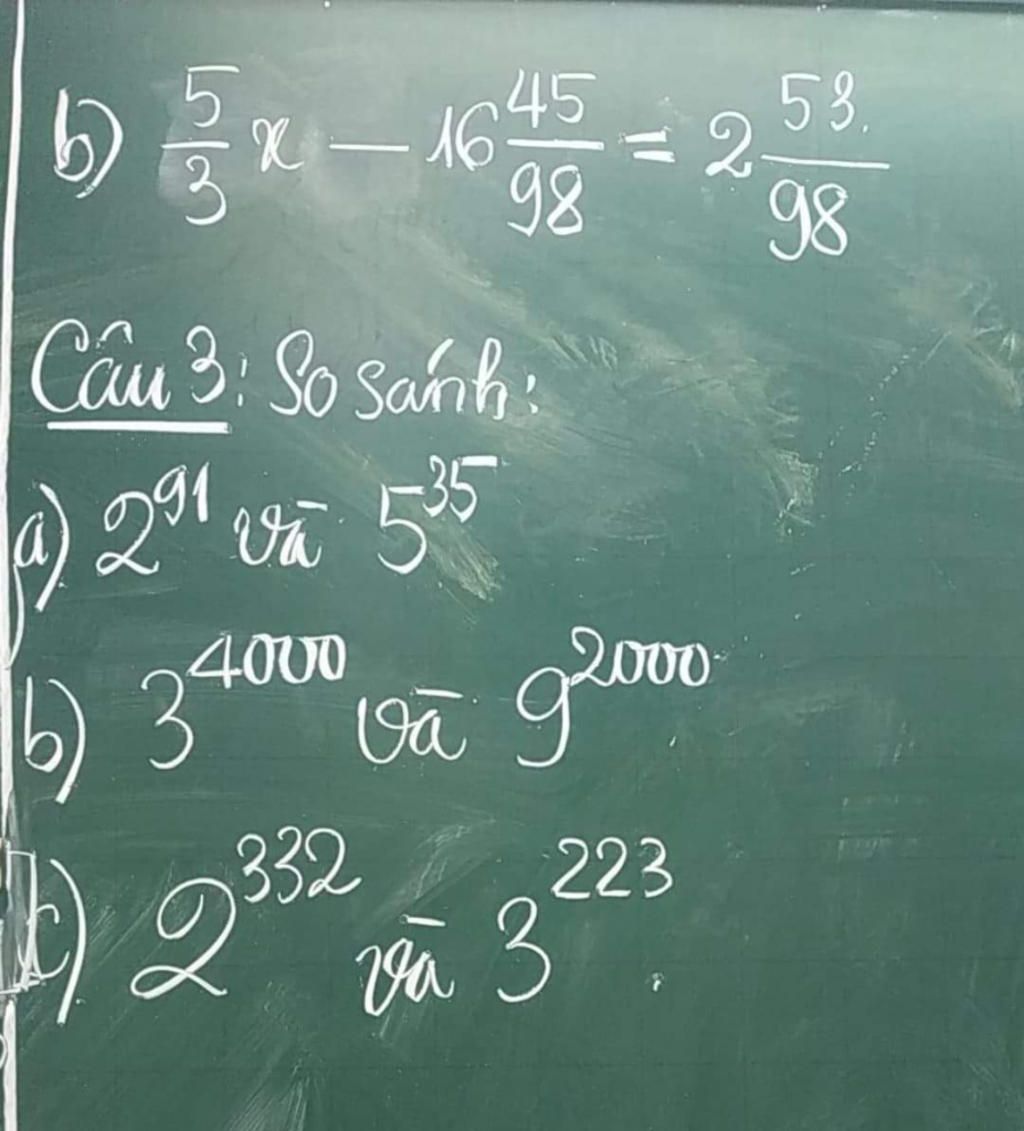 b) 5/3 x – 16 45/98 = 2 53/98
Câu 3: So sánh:
a) 2^91 và 5^35
b) 3^4000 và 9^2000
c) 2^332 và 3^223.